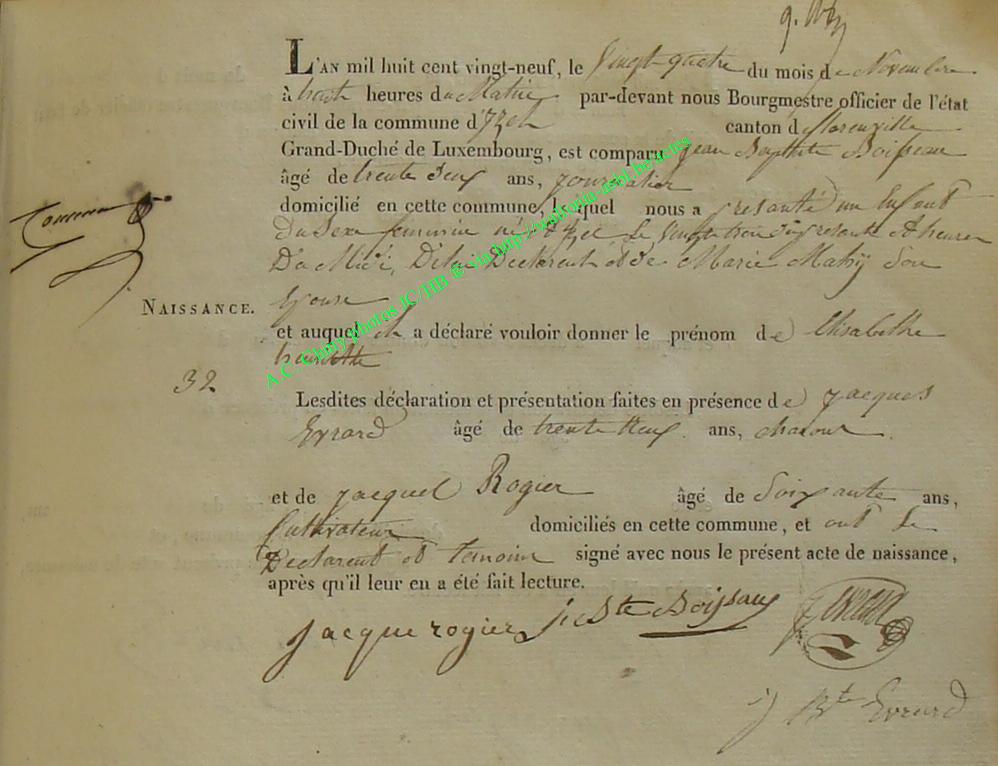 L'AN mil huit cent vingt-neuf, le vingt quatre du mois de Novembre
à huit heures du Matin par-devant nous Bourgmestre officier de l'état
civil de la commune d'Izel canton de florenville
Grand-Duché de Luxembourg, est comparu Jean Baptiste Boisseau
âgé de trente deux ans, journalier
domicilié en cette commune, lequel nous a presanté un Enfant
Du Sexe feminine né à Izel le vingt trois du presente à heures
Du Midi, De lui Declarent et de Marie Mahy Son
Epouse
NAISSANCE.
et auquel il a déclaré vouloir donner le prénom de Elisabethe
henriette
32
Lesdites déclaration et présentation faites en présence de jacques
Evrard âgé de trente neuf ans,
et de jacques Rogier âgé de Soixante ans,
Cultivateur domiciliés en cette commune, et ont le
Declarent et temoins signé avec nous le présent acte de naissance,
après qu'il leur en a été fait lecture.
jacque rogier j: Bte Boissaux
j Bte Evrard
A.C. Chiny photos JC/HB @ via http://walbonia-asbl.be/actes